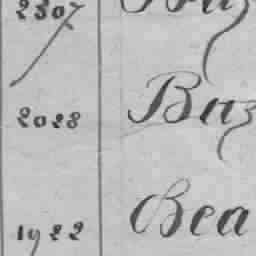 2307
2028 Baz
1922 Bea